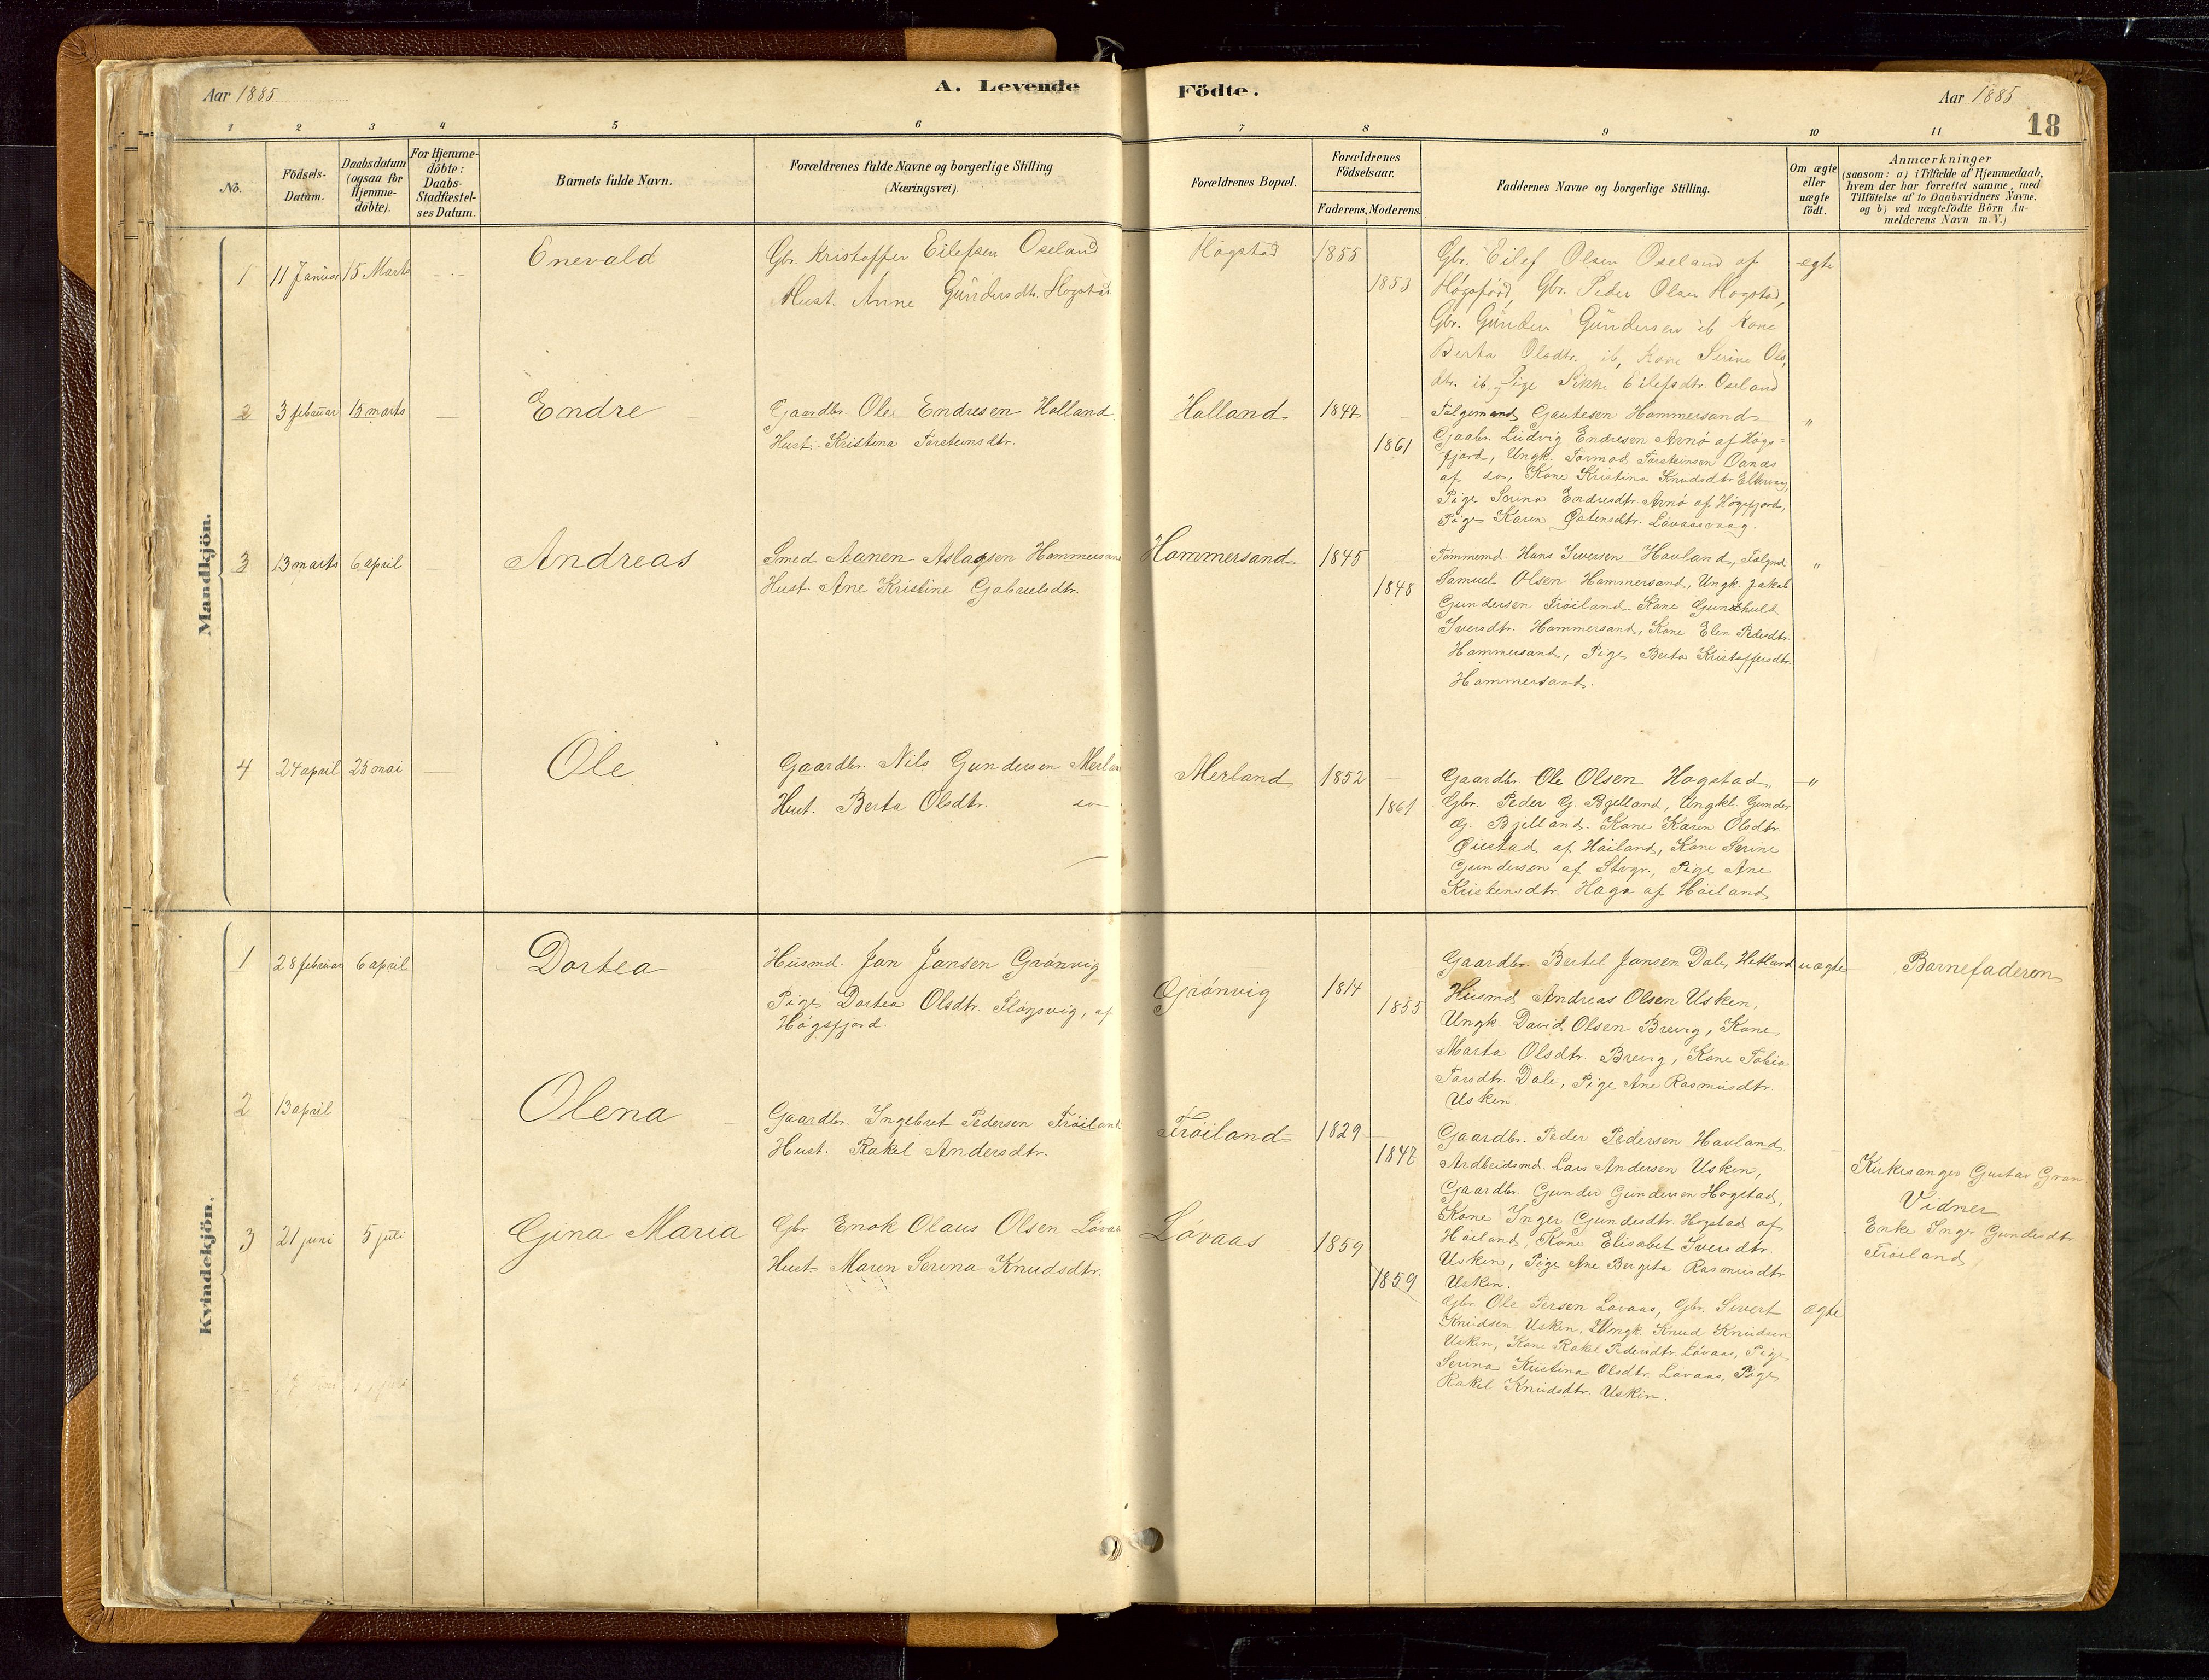 Aar 1885
A. Levende
Födte.
Aar 1885
18
1 2 3 4 5 6 7 8 9 10 11
No.
Födsels-
Datum.
Daabsdatum
(ogsaa for
Hjemme-
döbte).
For Hjemme-
döbte:
Daabs-
Stadfæstel-
ses Datum.
Barnets fulde Navn.
Forældrenes fulde Navne og borgerlige Stilling
(Næringsvei).
Forældrenes Bopæl.
Forældrenes
Födselsaar.
Faderens.
Moderens.
Faddernes Navne og borgerlige Stilling.
Om ægte
eller
uægte
födt.
Anmærkninger
(saasom: a) i Tilfælde af Hjemmedaab,
hvem der har forrettet samme, med
Tilföielse af to Daabsvidners Navne.
og b) ved uægtefödte Börn An-
melderens Navn m. V.)
Mandkjön.
1
11 Januar
15 Marts
Enevald
Gbr. Kristoffer Eilefsen Oseland
Hust. Anne Gundersdtr. Hogstad
Hogstad
1855
1853
Gbr. Eilef Olsen Oseland af
Høgsfjord, Gbr. Peder Olsen Hogstad,
Gbr. Gunder Gundersen ib Kone
Berta Olsdtr. ib, Kone Serine Ols,
dtr. ib. Pige Sikke Eilefsdtr. Oseland
ægte
2
3 februar
15 marts
Endre
Gaardbr. Ole Endresen Holland
Hust. Kristina Torsteinsdtr.
Holland
1847
1861
Folgemand Gautesen Hammersand
Gaabr. Ludvig Endresen Arnø af Høgs-
fjord, Ungk. Tormod Torsteinsen Oanæs
af do, Kone Kristina Knudsdtr. Eltervaag,
Pige Serina Endresdtr. Arnø af Høgsfjord,
Pige Karen Østensdtr. Løvaasvaag.
"
3
13 marts
6 april
Andreas
Smed Aanen Aslagsen Hammersand
Hust. Ane Kristine Gabrielsdtr.
Hammersand
1845
1848
Tømmermd. Hans Iversen Hauland, Folgmd
Samuel Olsen Hammersand, Ungk. Jakob
Gundersen Frøiland. Kone Gunhuld
Iversdtr. Hammersand, Kone Elen Pedersdtr.
Hammersand, Pige Berta Kristoffersdtr.
Hammersand.
"
4
24 april
25 mai
Ole
Gaardbr. Nils Gundersen Merland
Hust. Berta Olsdtr. do
Merland
1852
1861
Gaardbr. Ole Olsen Hogstad,
Gbr. Peder G. Bjelland, Ungkl. Gunder
G. Bjelland. Kone Karen Olsdtr.
Øiestad af Høiland, Kone Serine
Gundersen af Stvgr., Pige Ane
Kristensdtr. Haga af Høiland
"
Kvindekjön.
1
28 februar
6 april
Dortea
Husmd. Jan Jansen Grønvig
Pige Dortea Olsdtr. Flørsvig, af
Høgsfjord.
Grønvig
1814
1855
Gaardbr. Bertel Jansen Dale, Hetland
Husmd. Andreas Olsen Usken,
Ungk. David Olsen Brevig, Kone
Marta Olsdtr. Brevig, Kone Tobia
Torsdtr. Dale, Pige Ane Rasmusdtr.
Usken
uægte
Barnefaderen
2
13 april
Olena
Gaardbr. Ingebret Pedersen Frøiland
Hust. Rakel Andersdtr.
Frøiland
1829
1847
Gaardbr. Peder Pedersen Hauland.
Ardbeidsmd. Lars Andersen Usken,
Gaardbr. Gunder Gundersen Hogstad,
Kone Inger Gundersdtr. Hogstad af
Høiland, Kone Elisabet Iversdtr.
Usken, Pige Ane Bergita Rasmusdtr.
Usken.
Kirkesanger Gustav Gran
Vidner
Enke Inger Gundersdtr
Frøiland
3
21 juni
5 juli
Gina Maria
Gbr. Enok Olaus Olsen Løvaas
Hust Maren Serina Knudsdtr.
Løvaas
1859
1859
Gbr Ole Persen Løvaas, Gbr. Sivert
Knudsen Usken, Ungk. Knud Knudsen
Usken, Kone Rakel Pedersdtr. Løvaas, Pige
Serina Kristina Olsdtr. Løvaas, Pige
Rakel Knudsdtr. Usken.
ægte